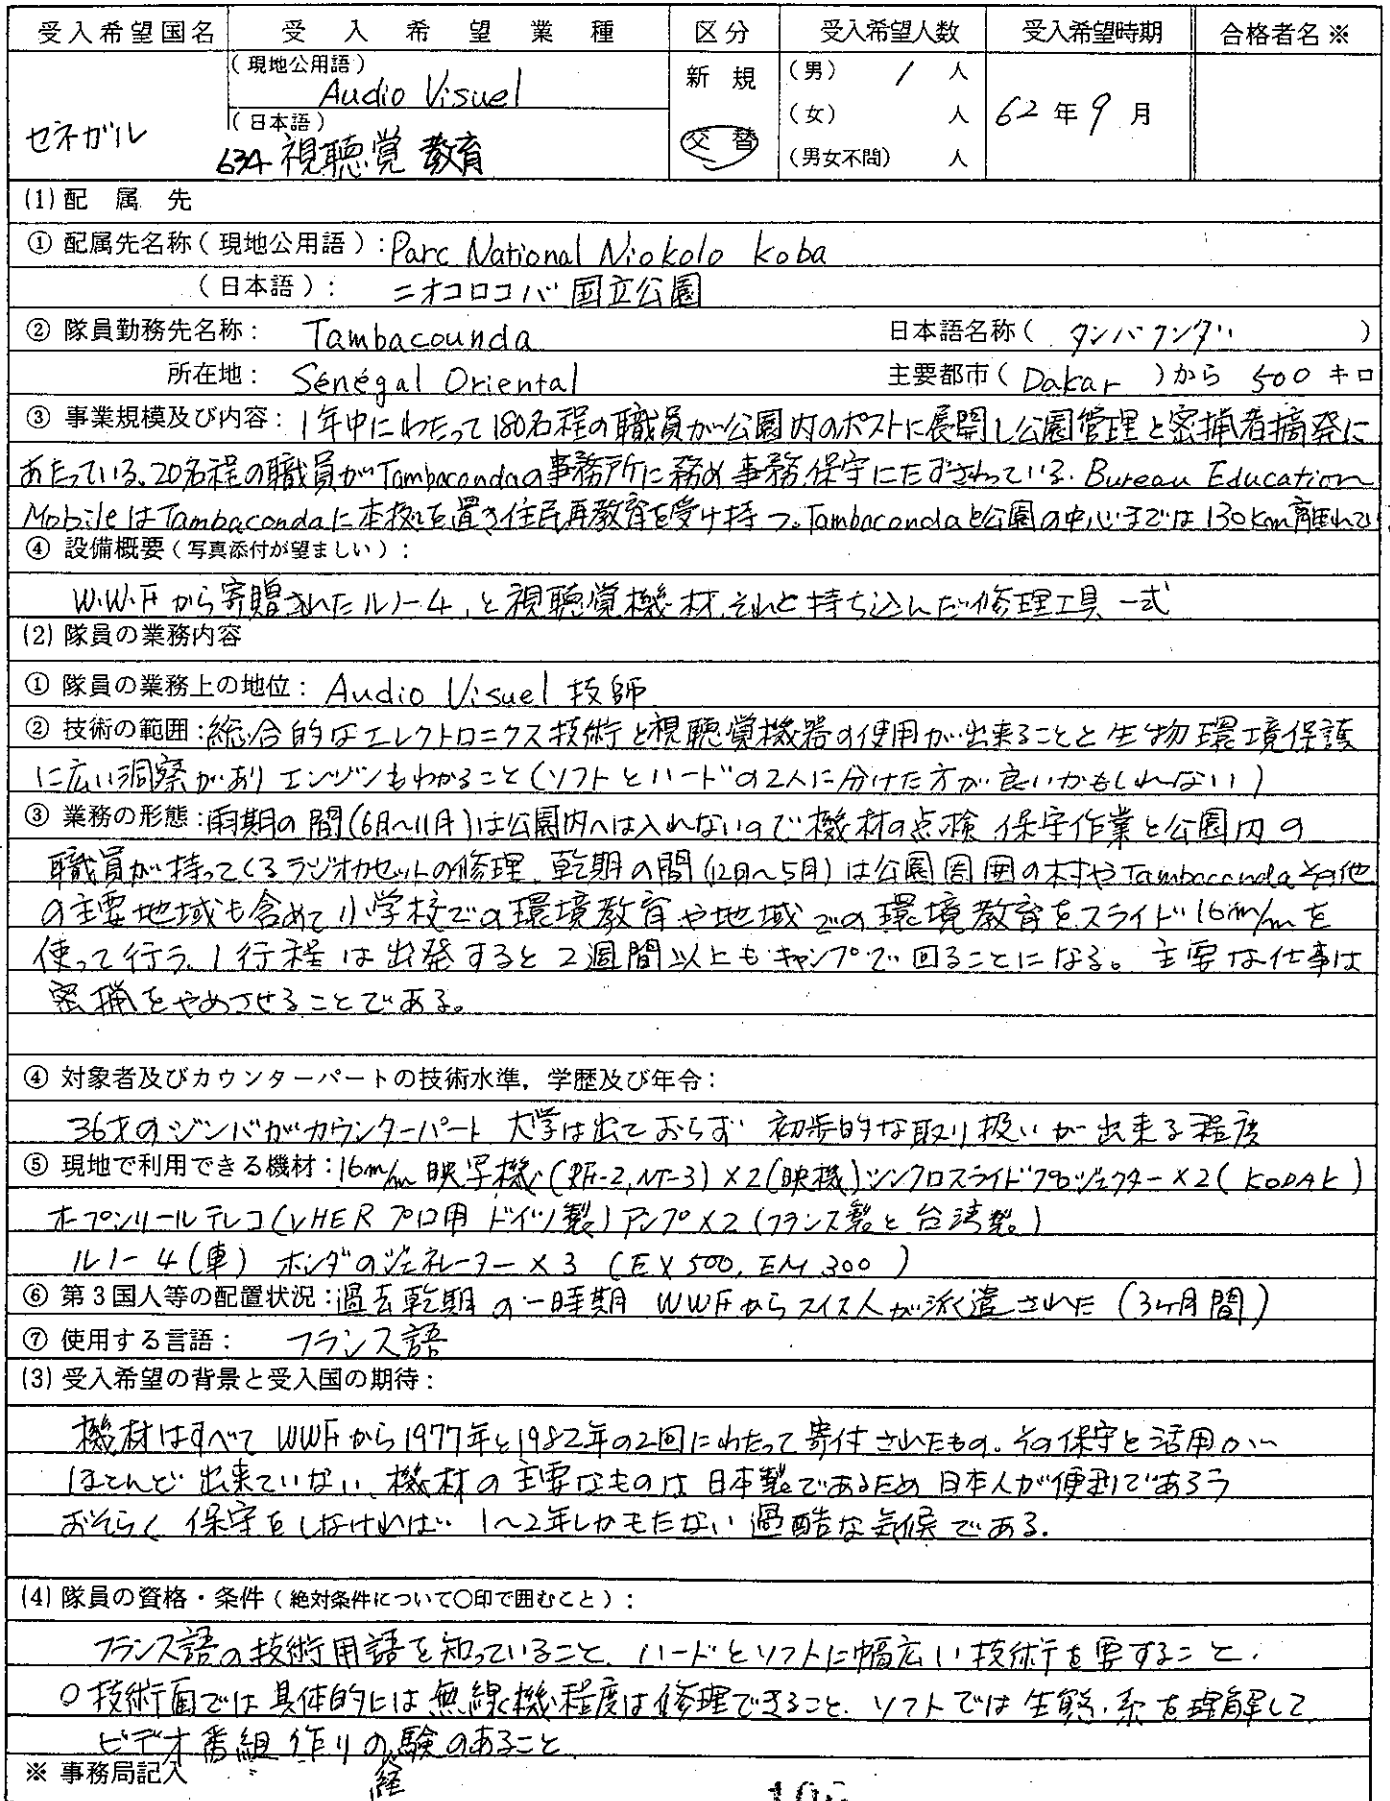 受入希望国名 受入希望業種 区分 受入希望人数 受入希望時期 合格者名※
セネガル (現地公用語) Audio Visuel
(日本語) 634 視聴覚教育
新規 交替
(男) 1 人
(女) 人
(男女不問) 人
62年9月
(1)配属先
① 配属先名称(現地公用語):Parc National Niokolo Koba
(日本語): ニオコロコバ国立公園
② 隊員勤務先名称: Tambacounda 日本語名称( タンバクンダ )
所在地: Sénégal Oriental 主要都市( Dakar )から 500 キロ
③ 事業規模及び内容:1年中にわたって180名程の職員が公園内のポストに展開し公園管理と密捕者摘発に
あたっている。20名程の職員がTambacondaの事務所に務め事務、保守にたずさわっている. Bureau Education
MobileはTambacondaに本拠を置き住民再教育を受け持つ.Tambacondaと公園の中心までは130km離れてい
④ 設備概要(写真添付が望ましい):
W.W.Fから寄贈されたルノー4,と視聴覚機材,それと持ち込んだ修理工具一式
(2)隊員の業務内容
① 隊員の業務上の地位: Audio Visuel 技師
② 技術の範囲:総合的なエレクトロニクス技術と視聴覚機器の使用が出来ることと生物環境保護
に広い洞察がありエンジンもわかること(ソフトとハードの2人に分けた方が良いかもしれない)
③ 業務の形態:雨期の間(6月〜11月)は公園内へは入れないので機材の点検 保守作業と公園内の
職員が持ってくるラジオカセットの修理、乾期の間(12月〜5月)は公園周囲の村やTambacondaその他
の主要地域も含めて小学校での環境教育や地域での環境教育をスライド16m/mを
使って行う。1行程は出発すると2週間以上もキャンプで回ることになる。主要な仕事は
密捕をやめさせることである。
④ 対象者及びカウンターパートの技術水準,学歴及び年令:
36才のジンバがカウンターパート 大学は出ておらず 初歩的な取り扱いが出来る程度
⑤ 現地で利用できる機材:16m/m映写機(RF-2,NT-3)×2(映機)シンクロスライドプロジェクター×2(KODAK)
オープンリールテレコ(VHERプロ用 ドイツ製)アンプ×2(フランス製と台湾製)
ルノー4(車) ホンダのジェネレーター×3 (EX500,EM300)
⑥ 第3国人等の配置状況:過去乾期の一時期 WWFからスイス人が派遣された(3ヶ月間)
⑦ 使用する言語: フランス語
(3)受入希望の背景と受入国の期待:
機材はすべてWWFから1977年と1982年の2回にわたって寄付されたもの。その保守と活用が
ほとんど出来ていない、機材の主要なものは日本製であるため日本人が便利であろう
おそらく保守をしなければ1〜2年しかもたない過酷な気候である.
(4)隊員の資格・条件(絶対条件について○印で囲むこと):
フランス語の技術用語を知っていること、ハードとソフトに幅広い技術を要すること.
○技術面では具体的には無線機程度は修理できること、ソフトでは生態系を理解して
ビデオ番組作りの経験のあること
※ 事務局記入